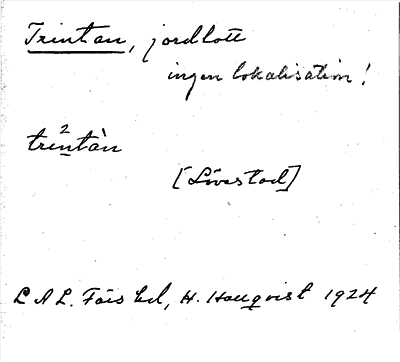 Trintan, jordlott
ingen lokalisation!
2
trentàn
[Livestad]
L A L. Fårs hd, H. Hallqvist 1924